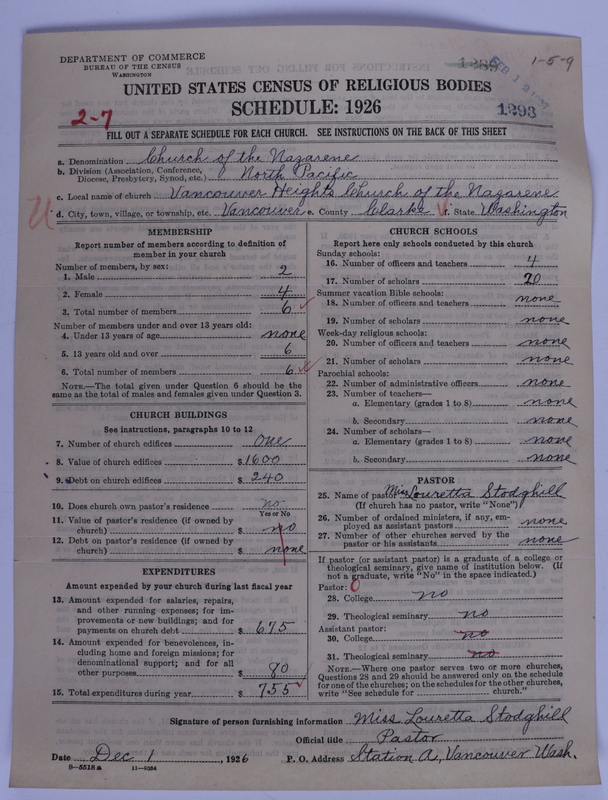 DEPARTMENT OF COMMERCE
BUREAU OF THE CENSUS
WASHINGTON
1-5-9
1289
UNITED STATES CENSUS OF RELIGIOUS BODIES
SCHEDULE: 1926
2-7
1293
FILL OUT A SEPARATE SCHEDULE FOR EACH CHURCH. SEE INSTRUCTIONS ON THE BACK OF THIS SHEET
a. Denomination Church of the Nazarene
b. Division (Association, Conference, Diocese, Presbytery, Synod, etc.) North Pacific
c. Local name of church Vancouver Heights Church of the Nazarene
U
d. City, town, village, or township, etc. Vancouver e. County Clarke f. State Washington
MEMBERSHIP
Report number of members according to definition of
member in your church
Number of members, by sex:
1. Male 2
2. Female 4
3. Total number of members 6
Number of members under and over 13 years old:
4. Under 13 years of age none
5. 13 years old and over 6
6. Total number of members 6
NOTE.—The total given under Question 6 should be the
same as the total of males and females given under Question 3.
CHURCH BUILDINGS
See instructions, paragraphs 10 to 12
7. Number of church edifices one
8. Value of church edifices $1600
9. Debt on church edifices $240
10. Does church own pastor's residence no
Yes or No
11. Value of pastor's residence (if owned by
church) $ no
12. Debt on pastor's residence (if owned by
church) $ none
EXPENDITURES
Amount expended by your church during last fiscal year
13. Amount expended for salaries, repairs,
and other running expenses; for im-
provements or new buildings; and for
payments on church debt $ 675
14. Amount expended for benevolences, in-
cluding home and foreign missions; for
denominational support; and for all
other purposes $ 80
15. Total expenditures during year $ 755
CHURCH SCHOOLS
Report here only schools conducted by this church
Sunday schools:
16. Number of officers and teachers 4
17. Number of scholars 20
Summer vacation Bible schools:
18. Number of officers and teachers none
19. Number of scholars none
Week-day religious schools:
20. Number of officers and teachers none
21. Number of scholars none
Parochial schools:
22. Number of administrative officers none
23. Number of teachers—
a. Elementary (grades 1 to 8) none
b. Secondary none
24. Number of scholars—
a. Elementary (grades 1 to 8) none
b. Secondary none
PASTOR
25. Name of pastor Miss Louretta Stodghill
(If church has no pastor, write "None")
26. Number of ordained ministers, if any, em-
ployed as assistant pastors none
27. Number of other churches served by the
pastor or his assistants none
If pastor (or assistant pastor) is a graduate of a college or
theological seminary, give name of institution below. (If
not a graduate, write "No" in the space indicated.)
Pastor: 0
28. College no
29. Theological seminary no
Assistant pastor:
30. College no
31. Theological seminary no
NOTE.—Where one pastor serves two or more churches,
Questions 28 and 29 should be answered only on the schedule
for one of the churches; on the schedules for the other churches,
write "See schedule for church."
Signature of person furnishing information Miss Louretta Stodghill
Official title Pastor
Date Dec 1, 1926 P. O. Address Station A, Vancouver Wash.
8-5518a 11-9264